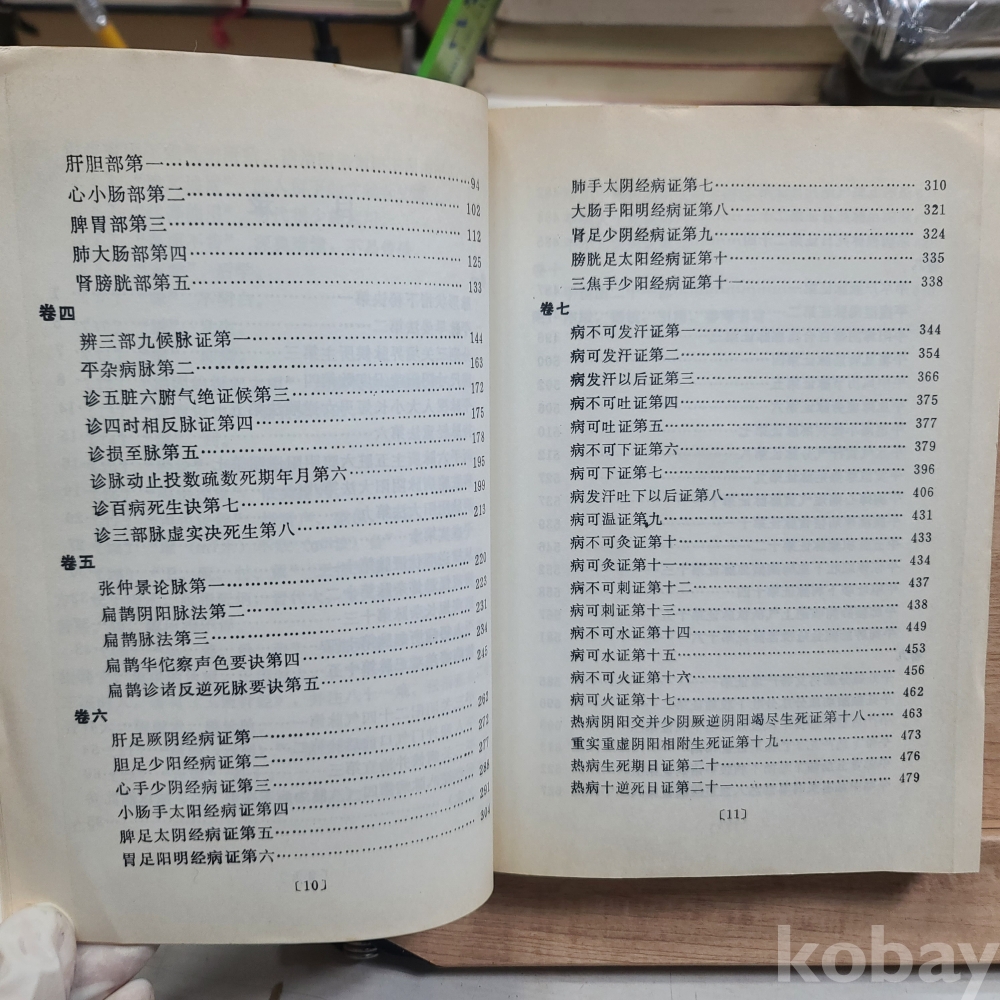 肝胆部第一……94
心小肠部第二……102
脾胃部第三……112
肺大肠部第四……125
肾膀胱部第五……133
卷四
辨三部九候脉证第一……144
平杂病脉第二……163
诊五脏六腑气绝证候第三……172
诊四时相反脉证第四……175
诊损至脉第五……178
诊脉动止投数疏数死期年月第六……195
诊百病死生诀第七……199
诊三部脉虚实决死生第八……213
卷五
张仲景论脉第一……220
扁鹊阴阳脉法第二……223
扁鹊脉法第三……231
扁鹊华佗察声色要诀第四……234
扁鹊诊诸反逆死脉要诀第五……245
卷六
肝足厥阴经病证第一……262
胆足少阳经病证第二……272
心手少阴经病证第三……277
小肠手太阳经病证第四……288
脾足太阴经病证第五……291
胃足阳明经病证第六……304
〔10〕
肺手太阴经病证第七……310
大肠手阳明经病证第八……321
肾足少阴经病证第九……324
膀胱足太阳经病证第十……335
三焦手少阳经病证第十一……338
卷七
病不可发汗证第一……344
病可发汗证第二……354
病发汗以后证第三……366
病不可吐证第四……375
病可吐证第五……377
病不可下证第六……379
病可下证第七……396
病发汗吐下以后证第八……406
病可温证第九……431
病不可灸证第十……433
病可灸证第十一……434
病不可刺证第十二……437
病可刺证第十三……438
病不可水证第十四……449
病可水证第十五……453
病不可火证第十六……456
病可火证第十七……462
热病阴阳交并少阴厥逆阴阳竭尽生死证第十八……463
重实重虚阴阳相附生死证第十九……473
热病生死期日证第二十……476
热病十逆死日证第二十一……479
〔11〕
kobay